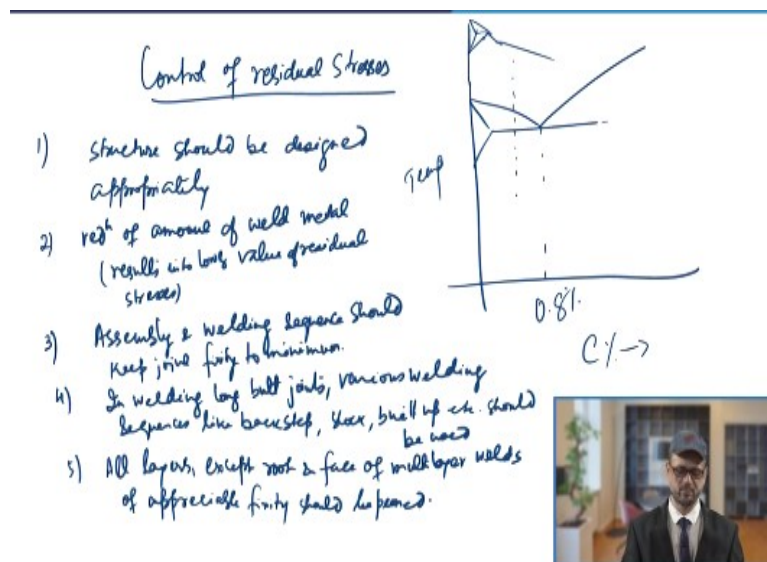 Control of residual Stresses
1) Structure should be designed
appropriately
2) redn of amount of weld metal
(results into lower value of residual
stresses)
3) Assembly & welding Sequence Should
Keep joint fixity to minimum.
4) In welding long butt joints, various welding
Sequences like backstep, block, built up etc. should
be used
5) All layers, except root & face of multilayer welds
of appreciable fixity should be peened.
Temp
0.8%
C% →